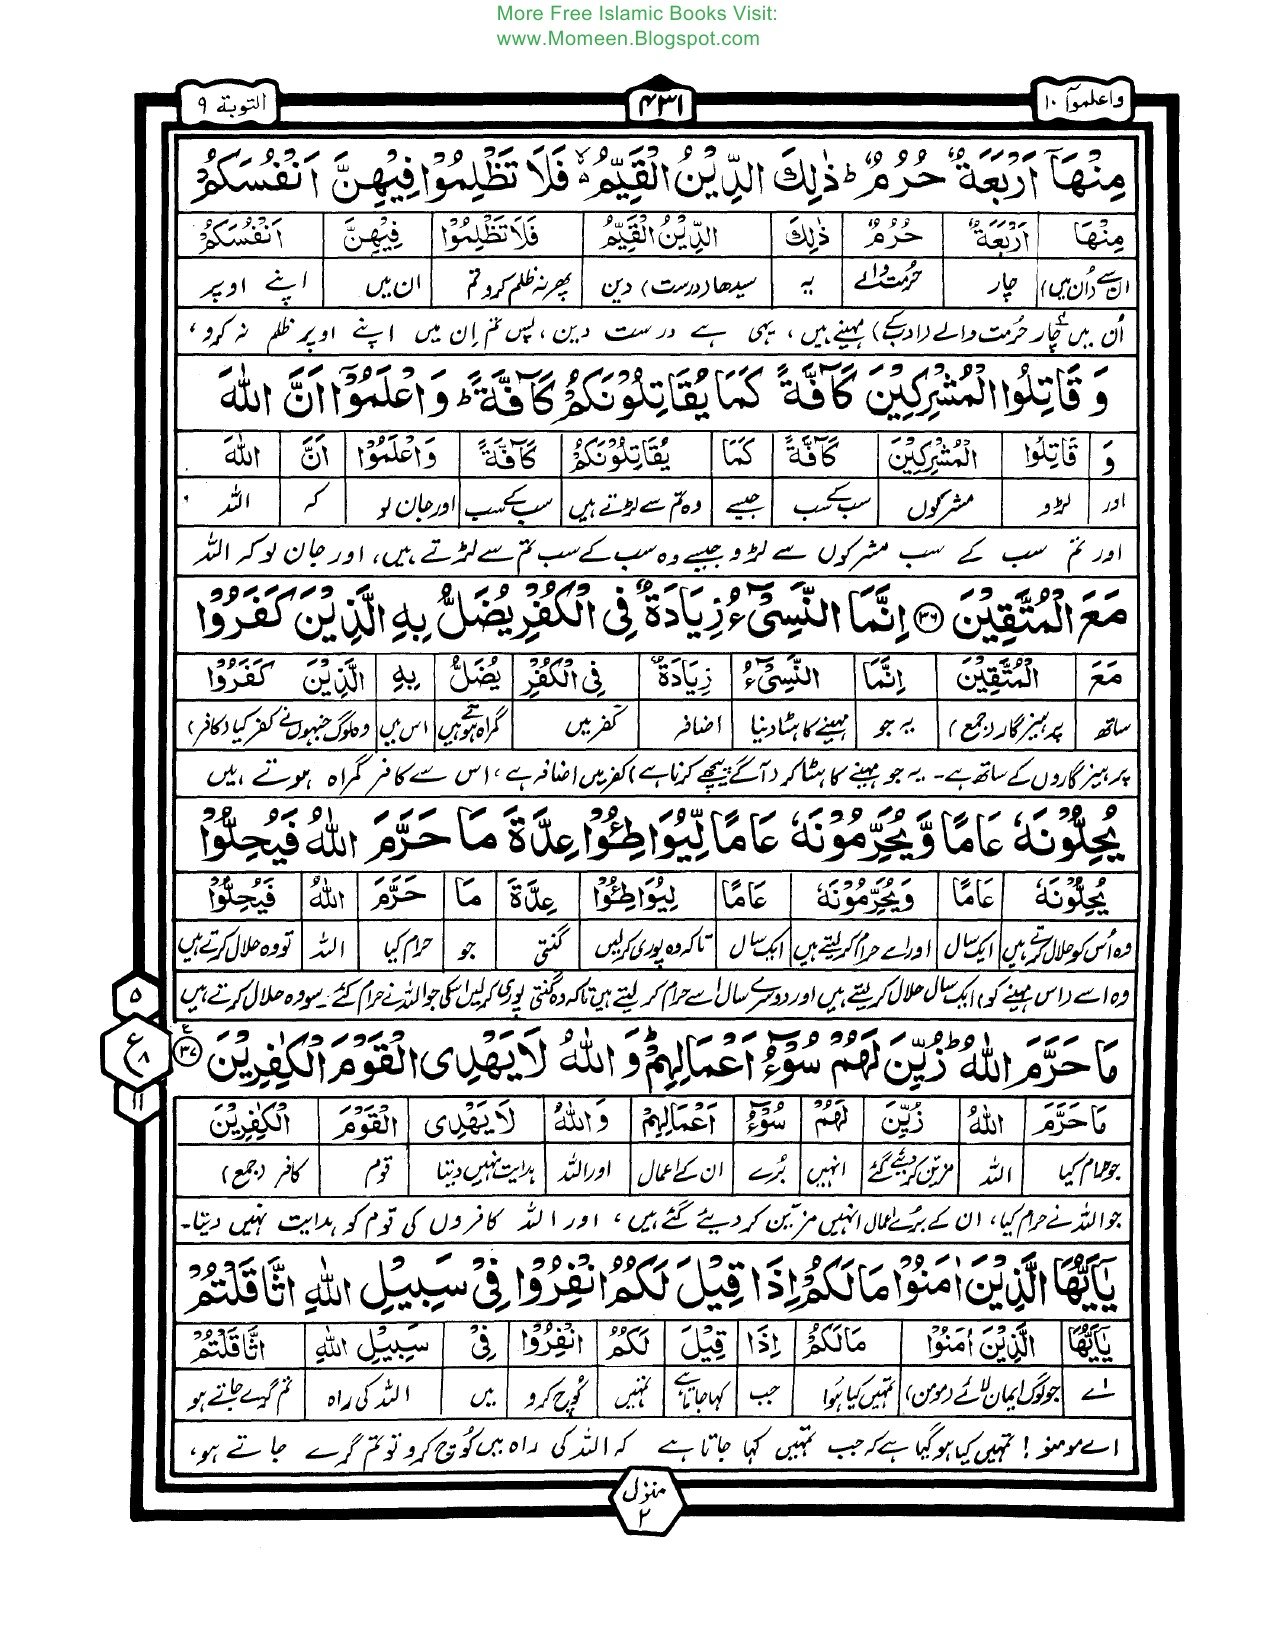 More Free Islamic Books Visit:
www.Momeen.Blogspot.com
واعلموآ ۱۰
۴۳۱
التوبة ۹
مِنْهَآ اَرْبَعَةٌ حُرُمٌ ؕ ذٰلِكَ الدِّيْنُ الْقَيِّمُ ۙ فَلَا تَظْلِمُوْا فِيْهِنَّ اَنْفُسَكُمْ
مِنْهَا اَرْبَعَةٌ حُرُمٌ ذٰلِكَ الدِّيْنُ الْقَيِّمُ فَلَا تَظْلِمُوْا فِيْهِنَّ اَنْفُسَكُمْ
ان سے (اُن میں) چار حرمت والے یہ سیدھا (درست) دین پھر نہ ظلم کرو تم ان میں اپنے اوپر
اُن میں سے چار حُرمت والے (ادب کے) مہینے ہیں، یہی ہے درست دین، پس تم اِن میں اپنے اوپر ظلم نہ کرو،
وَ قَاتِلُوا الْمُشْرِكِيْنَ كَآفَّةً كَمَا يُقَاتِلُوْنَكُمْ كَآفَّةً ؕ وَاعْلَمُوْٓا اَنَّ اللّٰهَ
وَ قَاتِلُوا الْمُشْرِكِيْنَ كَآفَّةً كَمَا يُقَاتِلُوْنَكُمْ كَآفَّةً وَاعْلَمُوْٓا اَنَّ اللّٰهَ
اور لڑو مشرکوں سب کے سب جیسے وہ تم سے لڑتے ہیں سب کے سب اور جان لو کہ اللہ
اور تم سب کے سب مشرکوں سے لڑو جیسے وہ سب کے سب تم سے لڑتے ہیں، اور جان لو کہ اللہ
مَعَ الْمُتَّقِيْنَ ۝۳۶ اِنَّمَا النَّسِیْٓءُ زِيَادَةٌ فِی الْكُفْرِ يُضَلُّ بِهِ الَّذِيْنَ كَفَرُوْا
مَعَ الْمُتَّقِيْنَ اِنَّمَا النَّسِیْٓءُ زِيَادَةٌ فِی الْكُفْرِ يُضَلُّ بِهِ الَّذِيْنَ كَفَرُوْا
ساتھ پرہیزگار (جمع) یہ جو مہینے کا ہٹا دینا اضافہ کفر میں گمراہ ہوتے ہیں اس میں وہ لوگ جنہوں نے کفر کیا (کافر)
پرہیزگاروں کے ساتھ ہے۔ یہ جو مہینے کا ہٹا کر (آگے پیچھے کرنا ہے) کفر میں اضافہ ہے، اس سے کافر گمراہ ہوتے ہیں
يُحِلُّوْنَهٗ عَامًا وَّيُحَرِّمُوْنَهٗ عَامًا لِّيُوَاطِئُوْا عِدَّةَ مَا حَرَّمَ اللّٰهُ فَيُحِلُّوْا
يُحِلُّوْنَهٗ عَامًا وَيُحَرِّمُوْنَهٗ عَامًا لِيُوَاطِئُوْا عِدَّةَ مَا حَرَّمَ اللّٰهُ فَيُحِلُّوْا
وہ اُس کو حلال کرتے ہیں ایک سال اور اسے حرام کر لیتے ہیں ایک سال تاکہ وہ پوری کرلیں گنتی جو حرام کیا اللہ تو وہ حلال کرتے ہیں
وہ اسے (اس مہینے کو) ایک سال حلال کر لیتے ہیں اور دوسرے سال اسے حرام کر لیتے ہیں تاکہ وہ گنتی پوری کرلیں اسکی جو اللہ نے حرام کئے۔ سو وہ حلال کرتے ہیں
۵
ع ۸
۱۱
مَا حَرَّمَ اللّٰهُ ؕ زُيِّنَ لَهُمْ سُوْٓءُ اَعْمَالِهِمْ ؕ وَ اللّٰهُ لَا يَهْدِی الْقَوْمَ الْكٰفِرِيْنَ ۝۳۷ ع
مَا حَرَّمَ اللّٰهُ زُيِّنَ لَهُمْ سُوْٓءُ اَعْمَالِهِمْ وَاللّٰهُ لَا يَهْدِی الْقَوْمَ الْكٰفِرِيْنَ
جو حرام کیا اللہ مزین کر دیئے گئے انہیں بُرے ان کے اعمال اور اللہ ہدایت نہیں دیتا قوم کافر (جمع)
جو اللہ نے حرام کیا، ان کے بُرے اعمال انہیں مزّین کر دیئے گئے ہیں، اور اللہ کافروں کی قوم کو ہدایت نہیں دیتا۔
يٰٓاَيُّهَا الَّذِيْنَ اٰمَنُوْا مَا لَكُمْ اِذَا قِيْلَ لَكُمُ انْفِرُوْا فِیْ سَبِيْلِ اللّٰهِ اثَّاقَلْتُمْ
يٰٓاَيُّهَا الَّذِيْنَ اٰمَنُوْا مَا لَكُمْ اِذَا قِيْلَ لَكُمُ انْفِرُوْا فِیْ سَبِيْلِ اللّٰهِ اثَّاقَلْتُمْ
اے جو لوگ ایمان لائے (مومن) تمہیں کیا ہُوا جب کہا جاتا ہے تمہیں کُوچ کرو میں اللہ کی راہ تم گرے جاتے ہو
اے مومنو! تمہیں کیا ہوگیا ہے کہ جب تمہیں کہا جاتا ہے کہ اللہ کی راہ میں کُوچ کرو تو تم گرے جاتے ہو،
منزل ۲